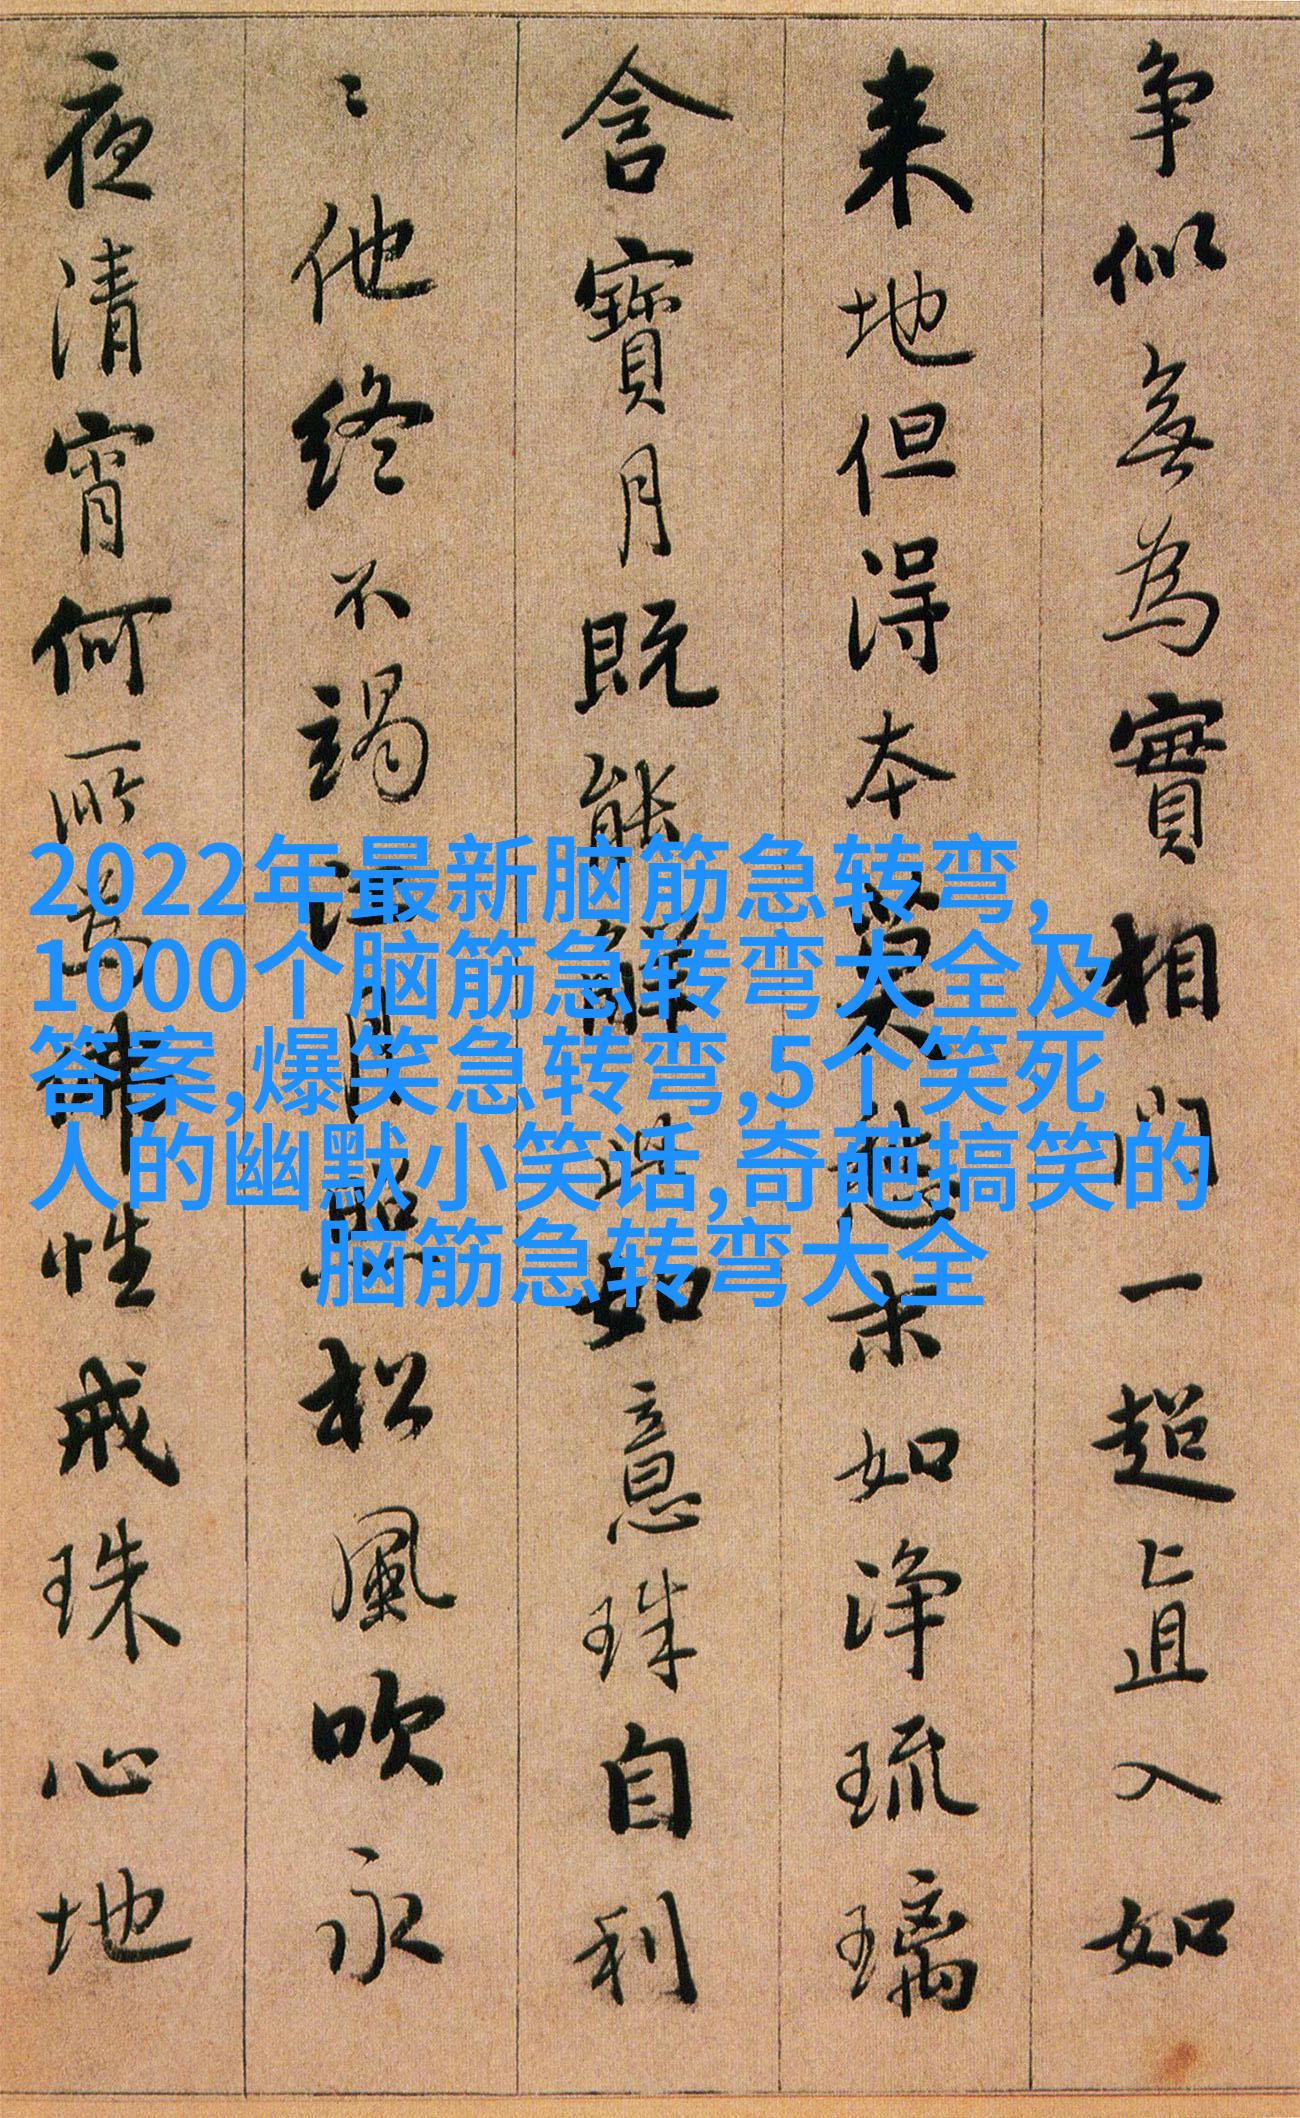 争似無為實相門一超直入如
来地但得本莫愁末如浄琉璃
含寶月既能解此如意珠自利
々他終不竭江月照松風吹永
夜清宵何所為佛性戒珠心地
2022年最新脑筋急转弯,
1000个脑筋急转弯大全及
答案,爆笑急转弯,5个笑死
人的幽默小笑话,奇葩搞笑的
脑筋急转弯大全